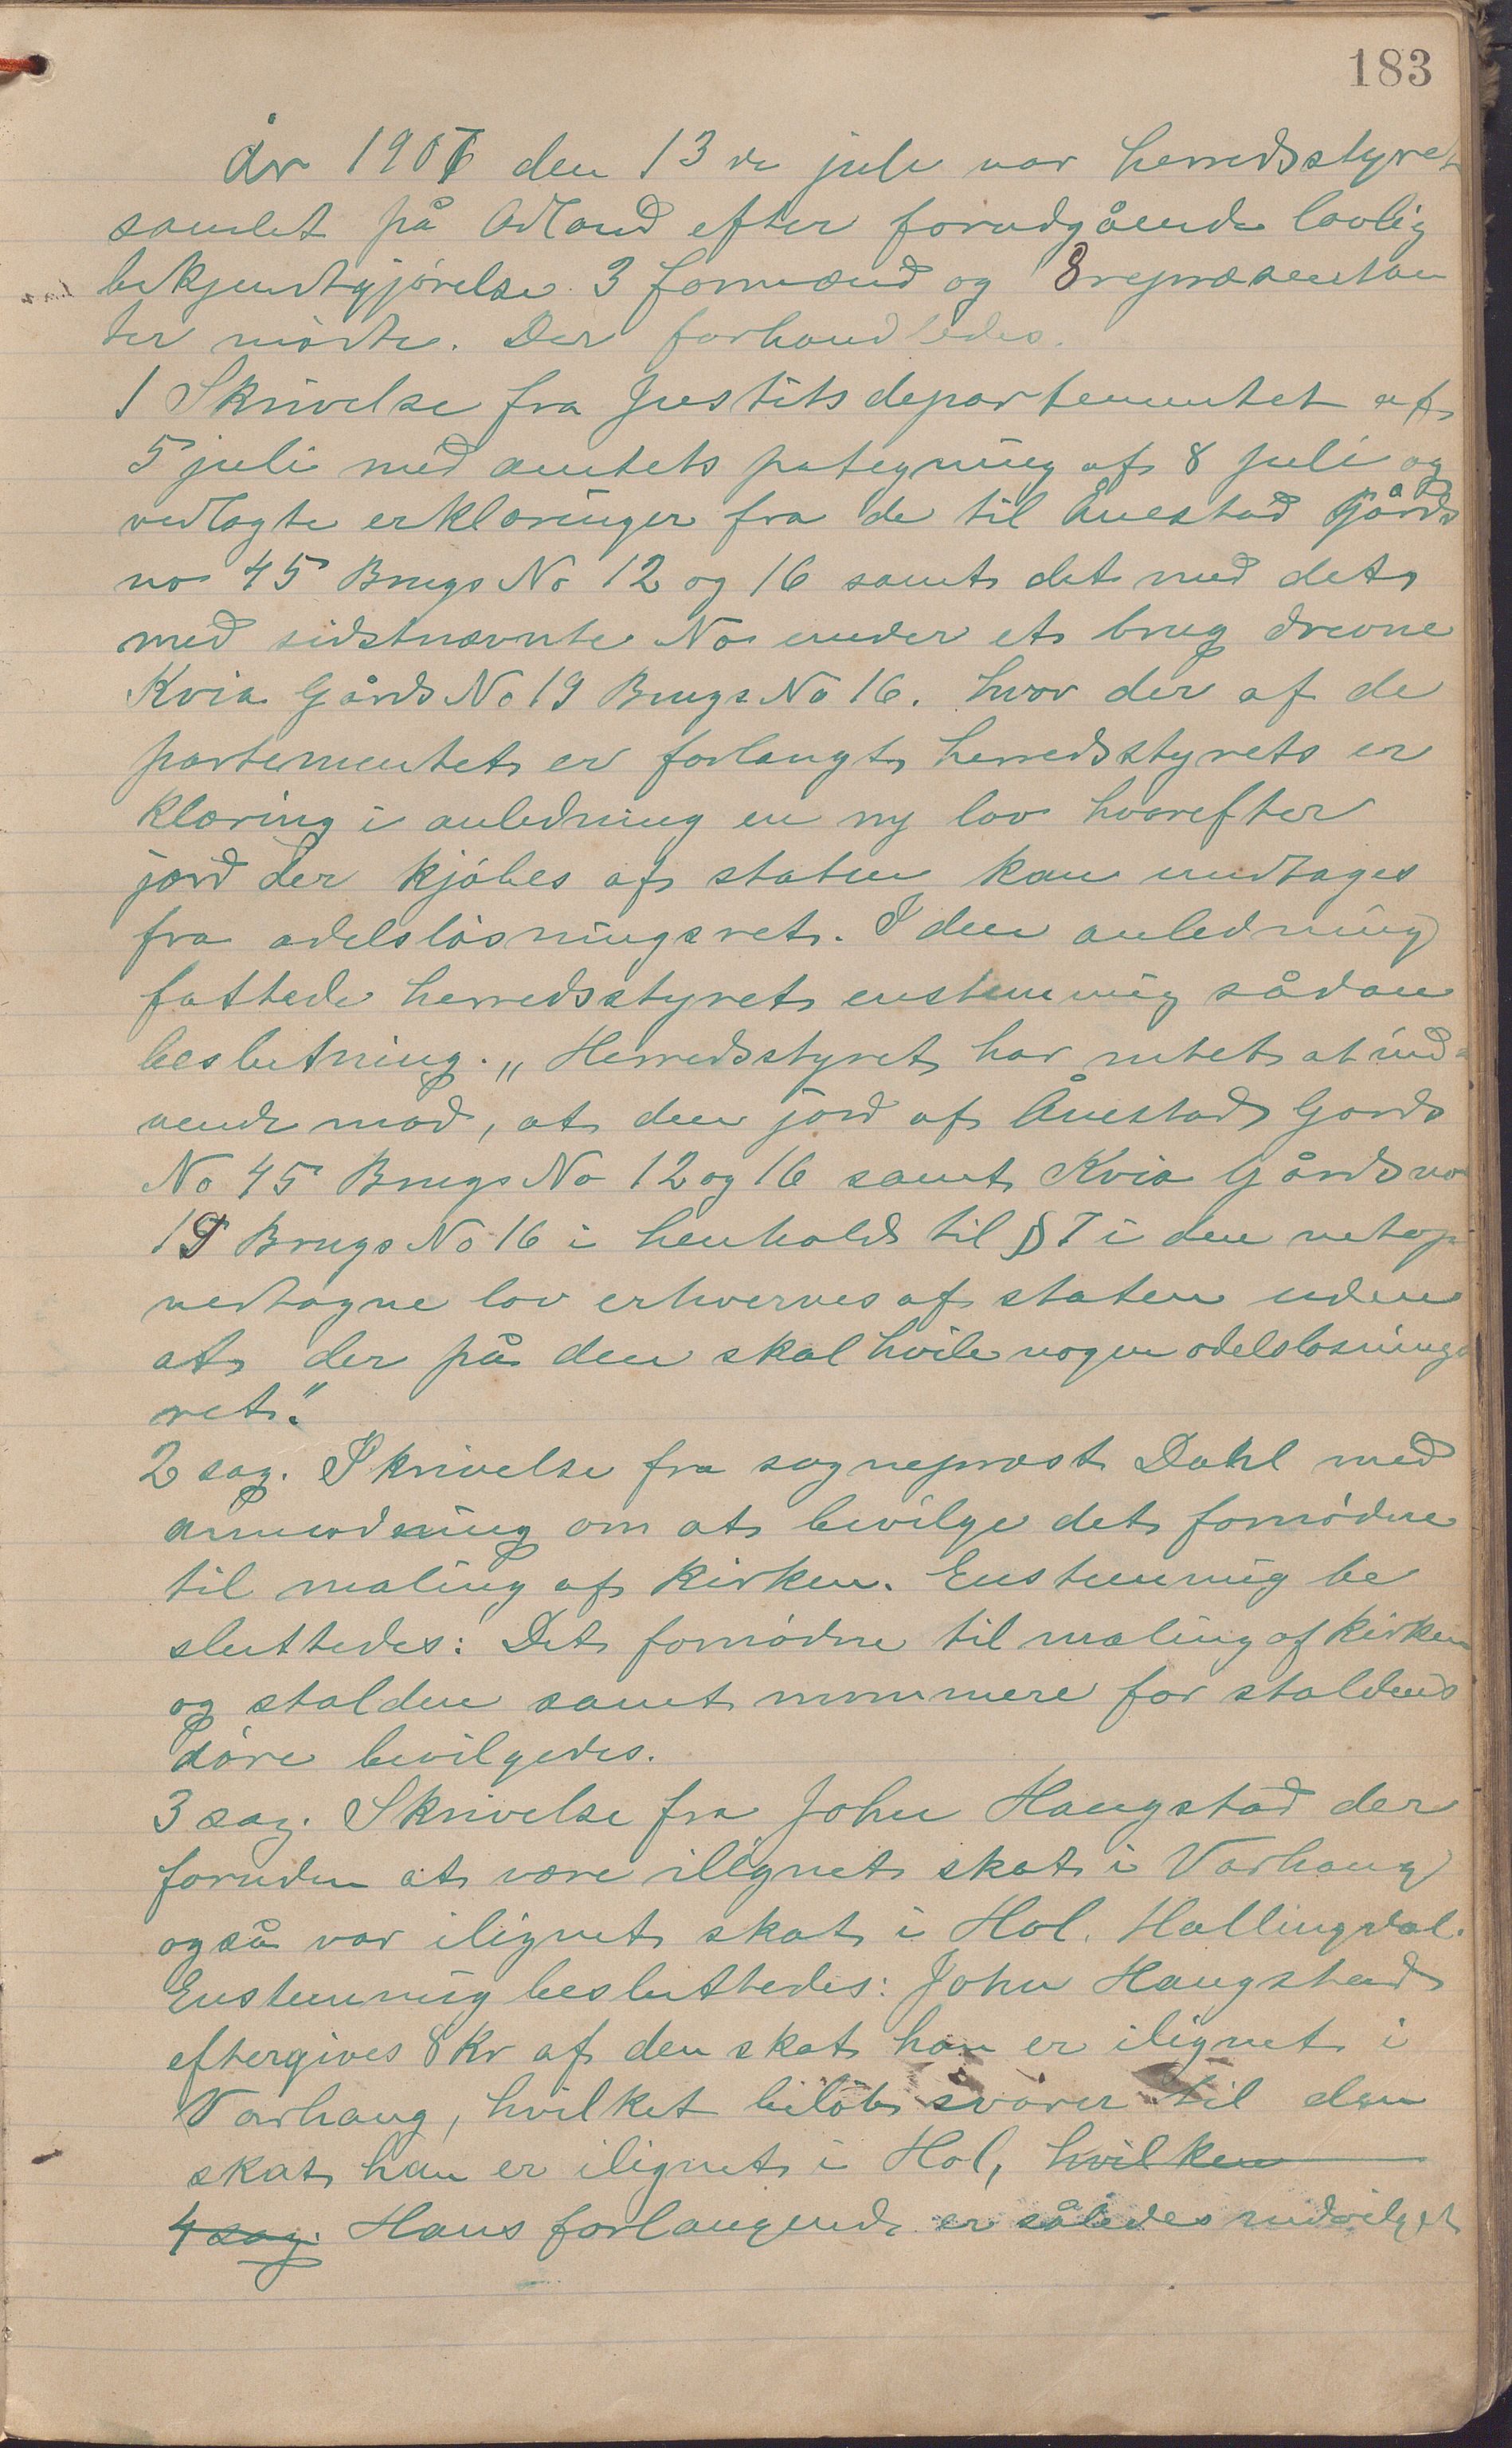 183
År 1907 den 13de juli var herredsstyret
samlet på Odland efter forudgående lovlig
bekjendtgjörelse. 3 formænd og 8 repræsentan
ter mödte. Der forhandledes.
1 Skrivelse fra Justitsdepartementet af
5 juli med amtets pategning af 8 juli og
vedlagte erklæringer fra de til Ånestad Gårds
no 45 Brugs No 12 og 16 samt det med det
med sidstnævnte No under et brug drevne
Kvia Gårds No 19 Brugs No 16. hvor der af de
partementet er forlangt herredsstyrets er
klæring i anledning en ny lov hvorefter
jord der kjöbes af staten kan undtages
fra odelslösningsret. I den anledning
fattede herredsstyret enstemmig sådan
beslutning. „Herredsstyret har intet at ind-
vende mod, at den jord af Ånestad Gards
No 45 Brugs No 12 og 16 samt Kvia Gårdsno
19 Brugs No 16 i henhold til § 7 i den netop
vedtagne lov erhverves af staten uden
at der på den skal hvile nogen odelslosnings
ret."
2 sag. Skrivelse fra sogneprest Dahl med
anmodning om at bevilge det fornödne
til maling af kirken. Enstemmig be
sluttedes: Det fornödne til maling af kirken
og stalden samt nummere for staldens
döre bevilgedes.
3 sag. Skrivelse fra John Haugstad der
foruden at være ilignet skat i Varhaug
også var ilignet skat i Hol. Hallingdal.
Enstemmig besluttedes: John Haugstad
eftergives 8 Kr af den skat han er ilignet i
Varhaug, hvilket belöb svarer til den
skat han er ilignet i Hol, hvilken
4 sag. Hans forlangende er således indvilget